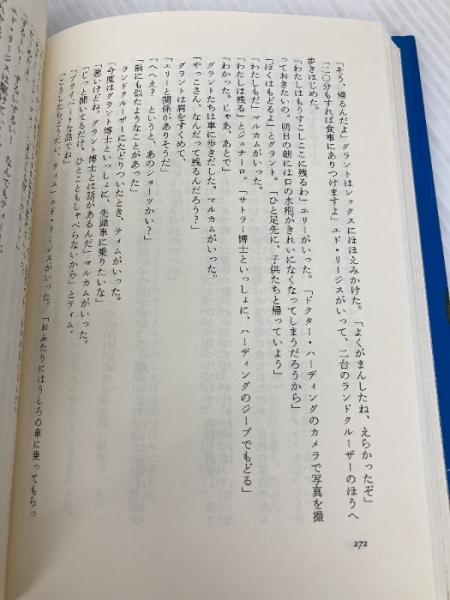 「そう、帰るんだよ」グラントはレックスにほほえみかけた。「よくがまんしたね、えらかったぞ」
「二〇分もすれば食事にありつけますよ」エド・リージスがいって、二台のランドクルーザーのほうへ
歩きはじめた。
「わたしはもうすこしここに残るわ」エリーがいった。「ドクター・ハーディングのカメラで写真を撮
っておきたいの。明日の朝には口の水疱がきれいになくなってしまうだろうから」
「ぼくはもどるよ」とグラント。「ひと足先に、子供たちと帰っていよう」
「わたしもだ」マルカムがいった。
「わたしは残る」とジェナーロ。「サトラー博士といっしょに、ハーディングのジープでもどる」
「わかった。じゃあ、あとで」
グラントたちは車に歩きだした。マルカムがいった。
「やっこさん、なんだって残るんだろう?」
グラントは肩をすくめて、
「エリーと関係がありそうだ」
「へへえ? というと、あのショーツかい?」
「前にも似たようなことがあった」
ランドクルーザーにたどりついたとき、ティムがいった。
「今度はグラント博士といっしょに、先頭車に乗りたいな」
「悪いけどね、グラント博士とは話があるんだ」マルカムがいった。
「じっと聞いてるだけ。ひとこともしゃべらないから」とティム。
「プライベートな話でね」
「こうしたらどうだい、ティム」エド・リージスがいった。「おふたりにはうしろの車に乗ってもらっ
272